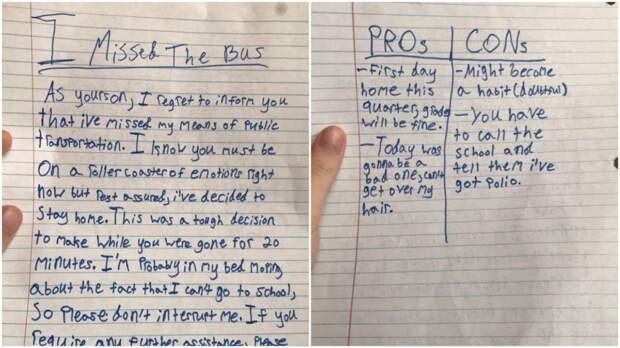 I Missed The Bus
As yourson, I regret to inform you
that ive missed my means of Public
transportation. I know you must be
on a rollercoaster of emotions right
now but Rest assured, i've decided to
Stay home. This was a tough decision
to make while you were gone for 20
minutes. I'M Probably in my bed Moping
about the fact that I can't go to school,
So Please don't interrupt me. If you
require any further assistance, Please
PROs
-First day
home this
quarter, grades
will be fine.
-Today was
gonna be a
bad one, can't
get over my
hair.
CONs
-Might become
a habit (doubtful)
-You have
to call the
school and
tell them i've
got Polio.